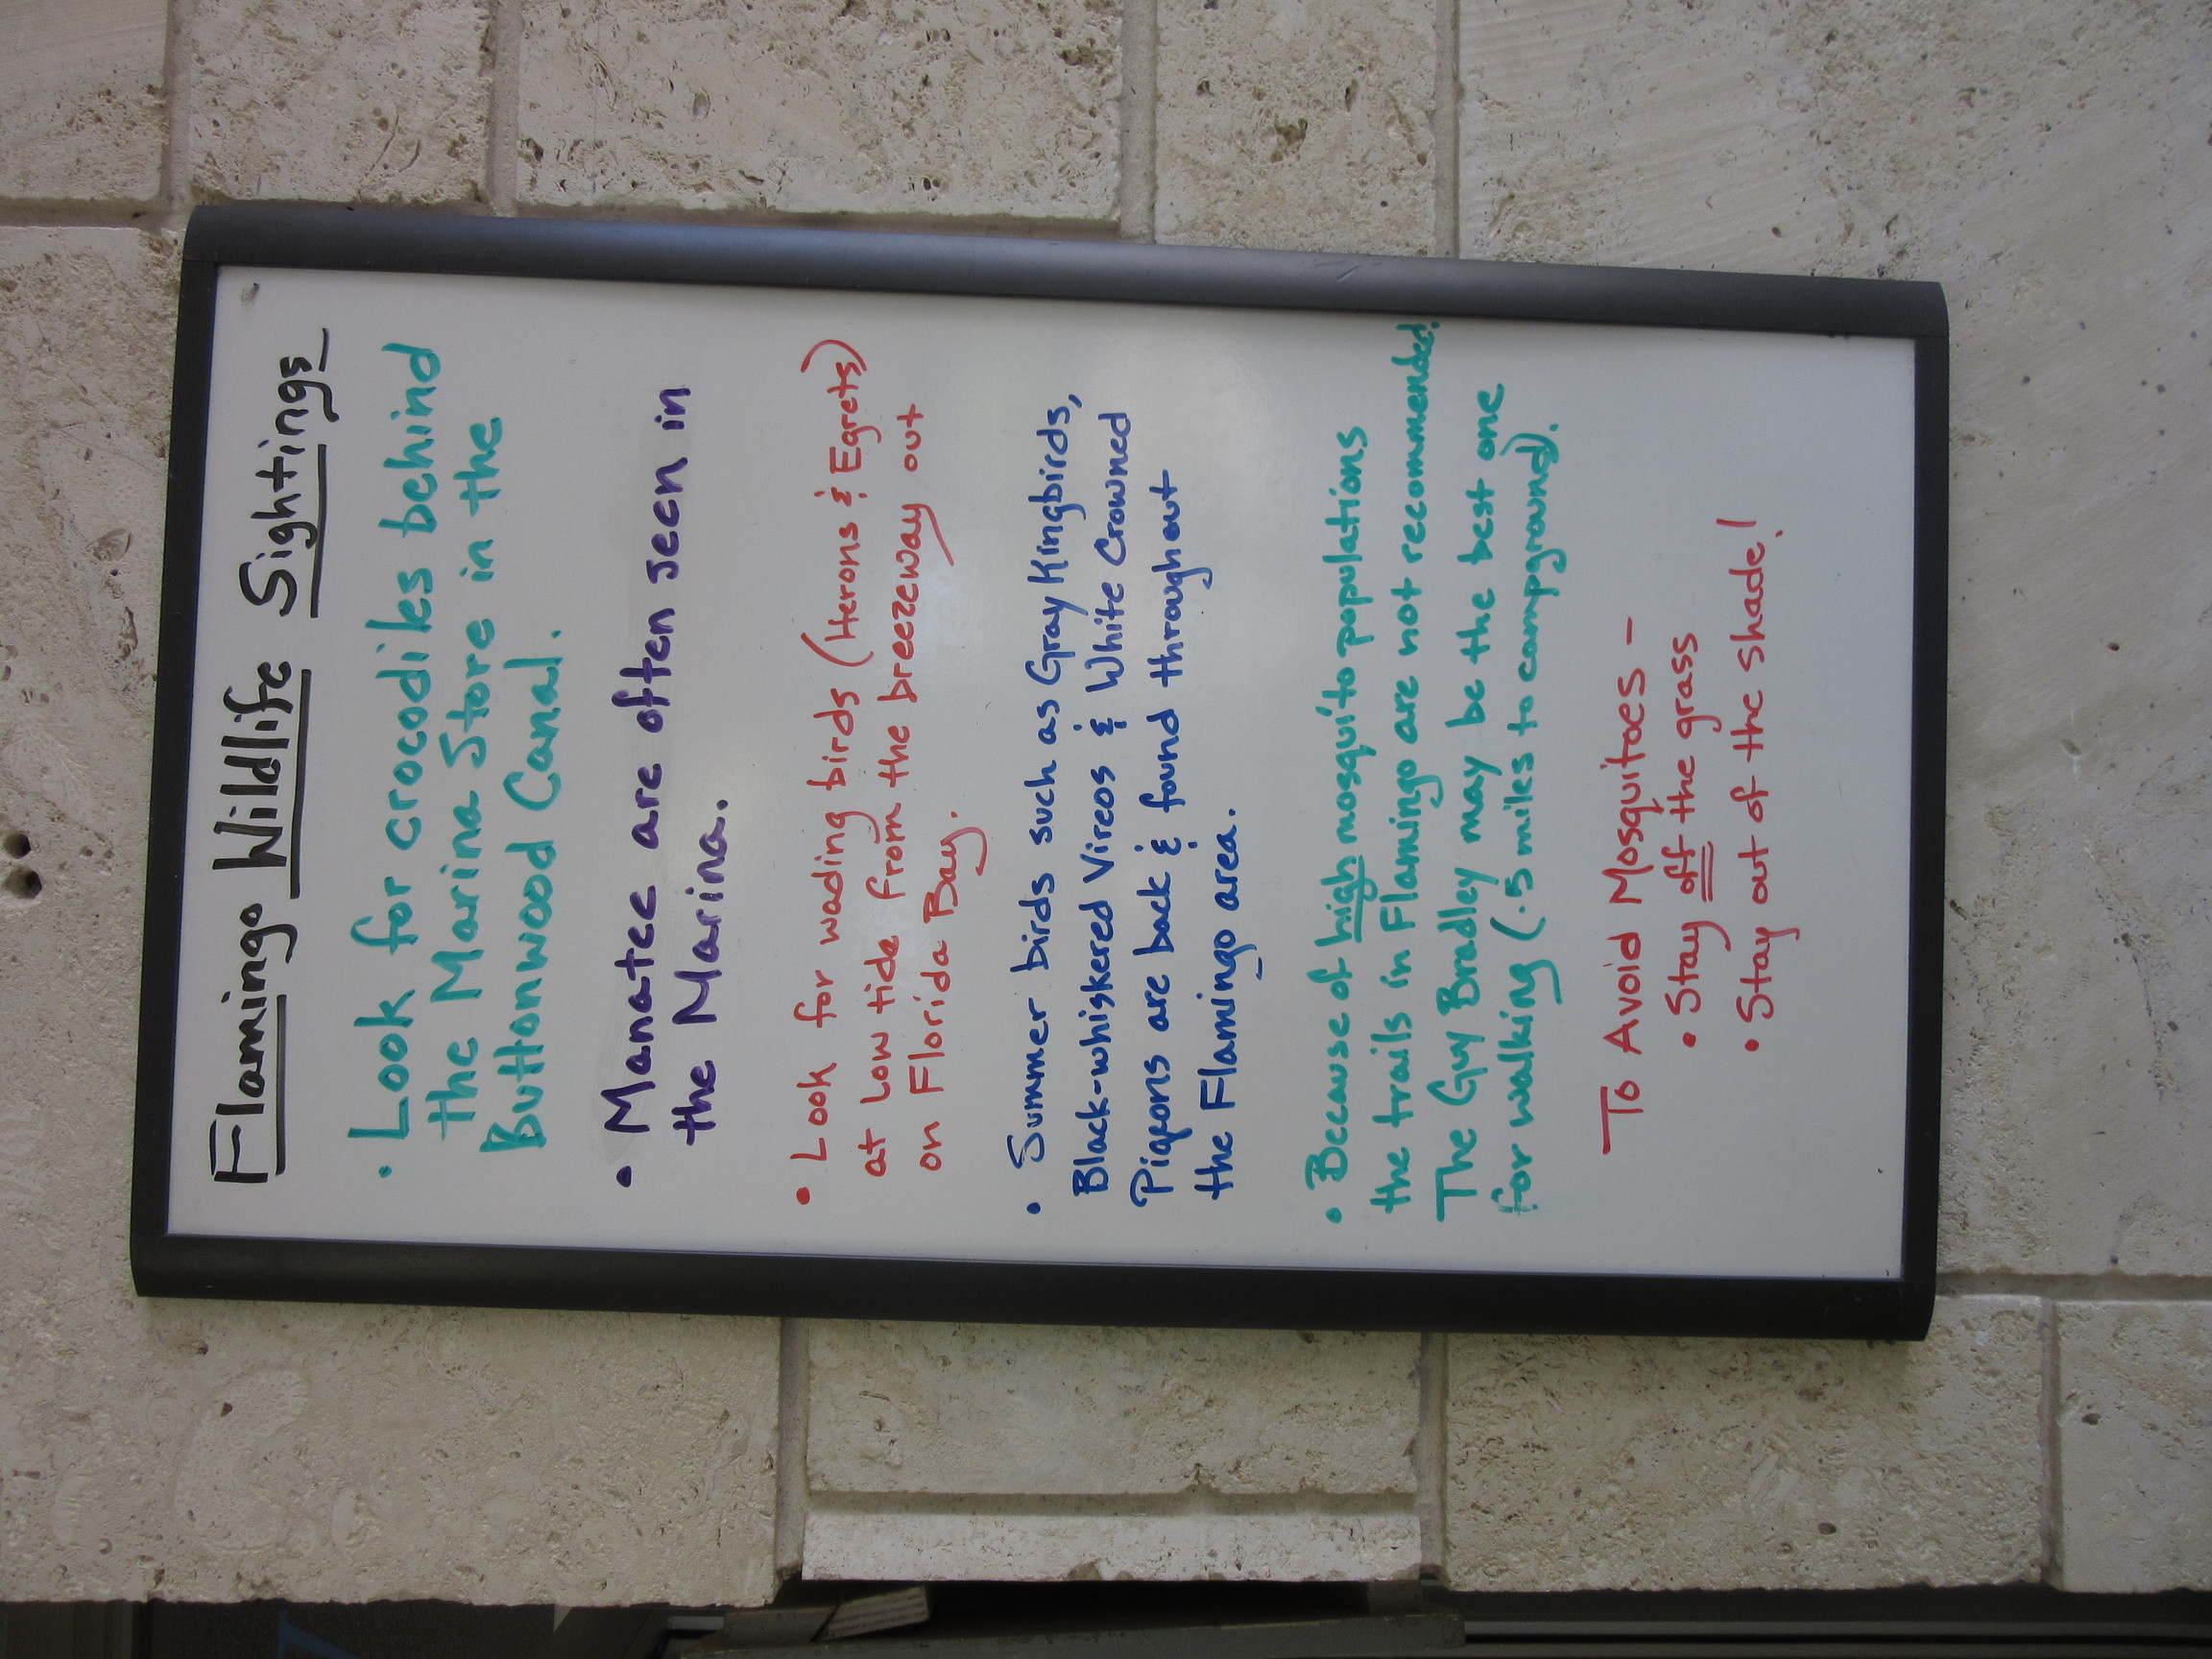 Flamingo Wildlife Sightings
• Look for crocodiles behind
the Marina Store in the
Buttonwood Canal.
• Manatee are often seen in
the Marina.
• Look for wading birds (Herons & Egrets)
at low tide from the breezeway out
on Florida Bay.
• Summer birds such as Gray Kingbirds,
Black-whiskered Vireos & White Crowned
Pigeons are back & found throughout
the Flamingo area.
• Because of high mosquito populations
the trails in Flamingo are not recommended.
The Guy Bradley may be the best one
for walking (.5 miles to campground).
To Avoid Mosquitoes -
• Stay off the grass
• Stay out of the shade!